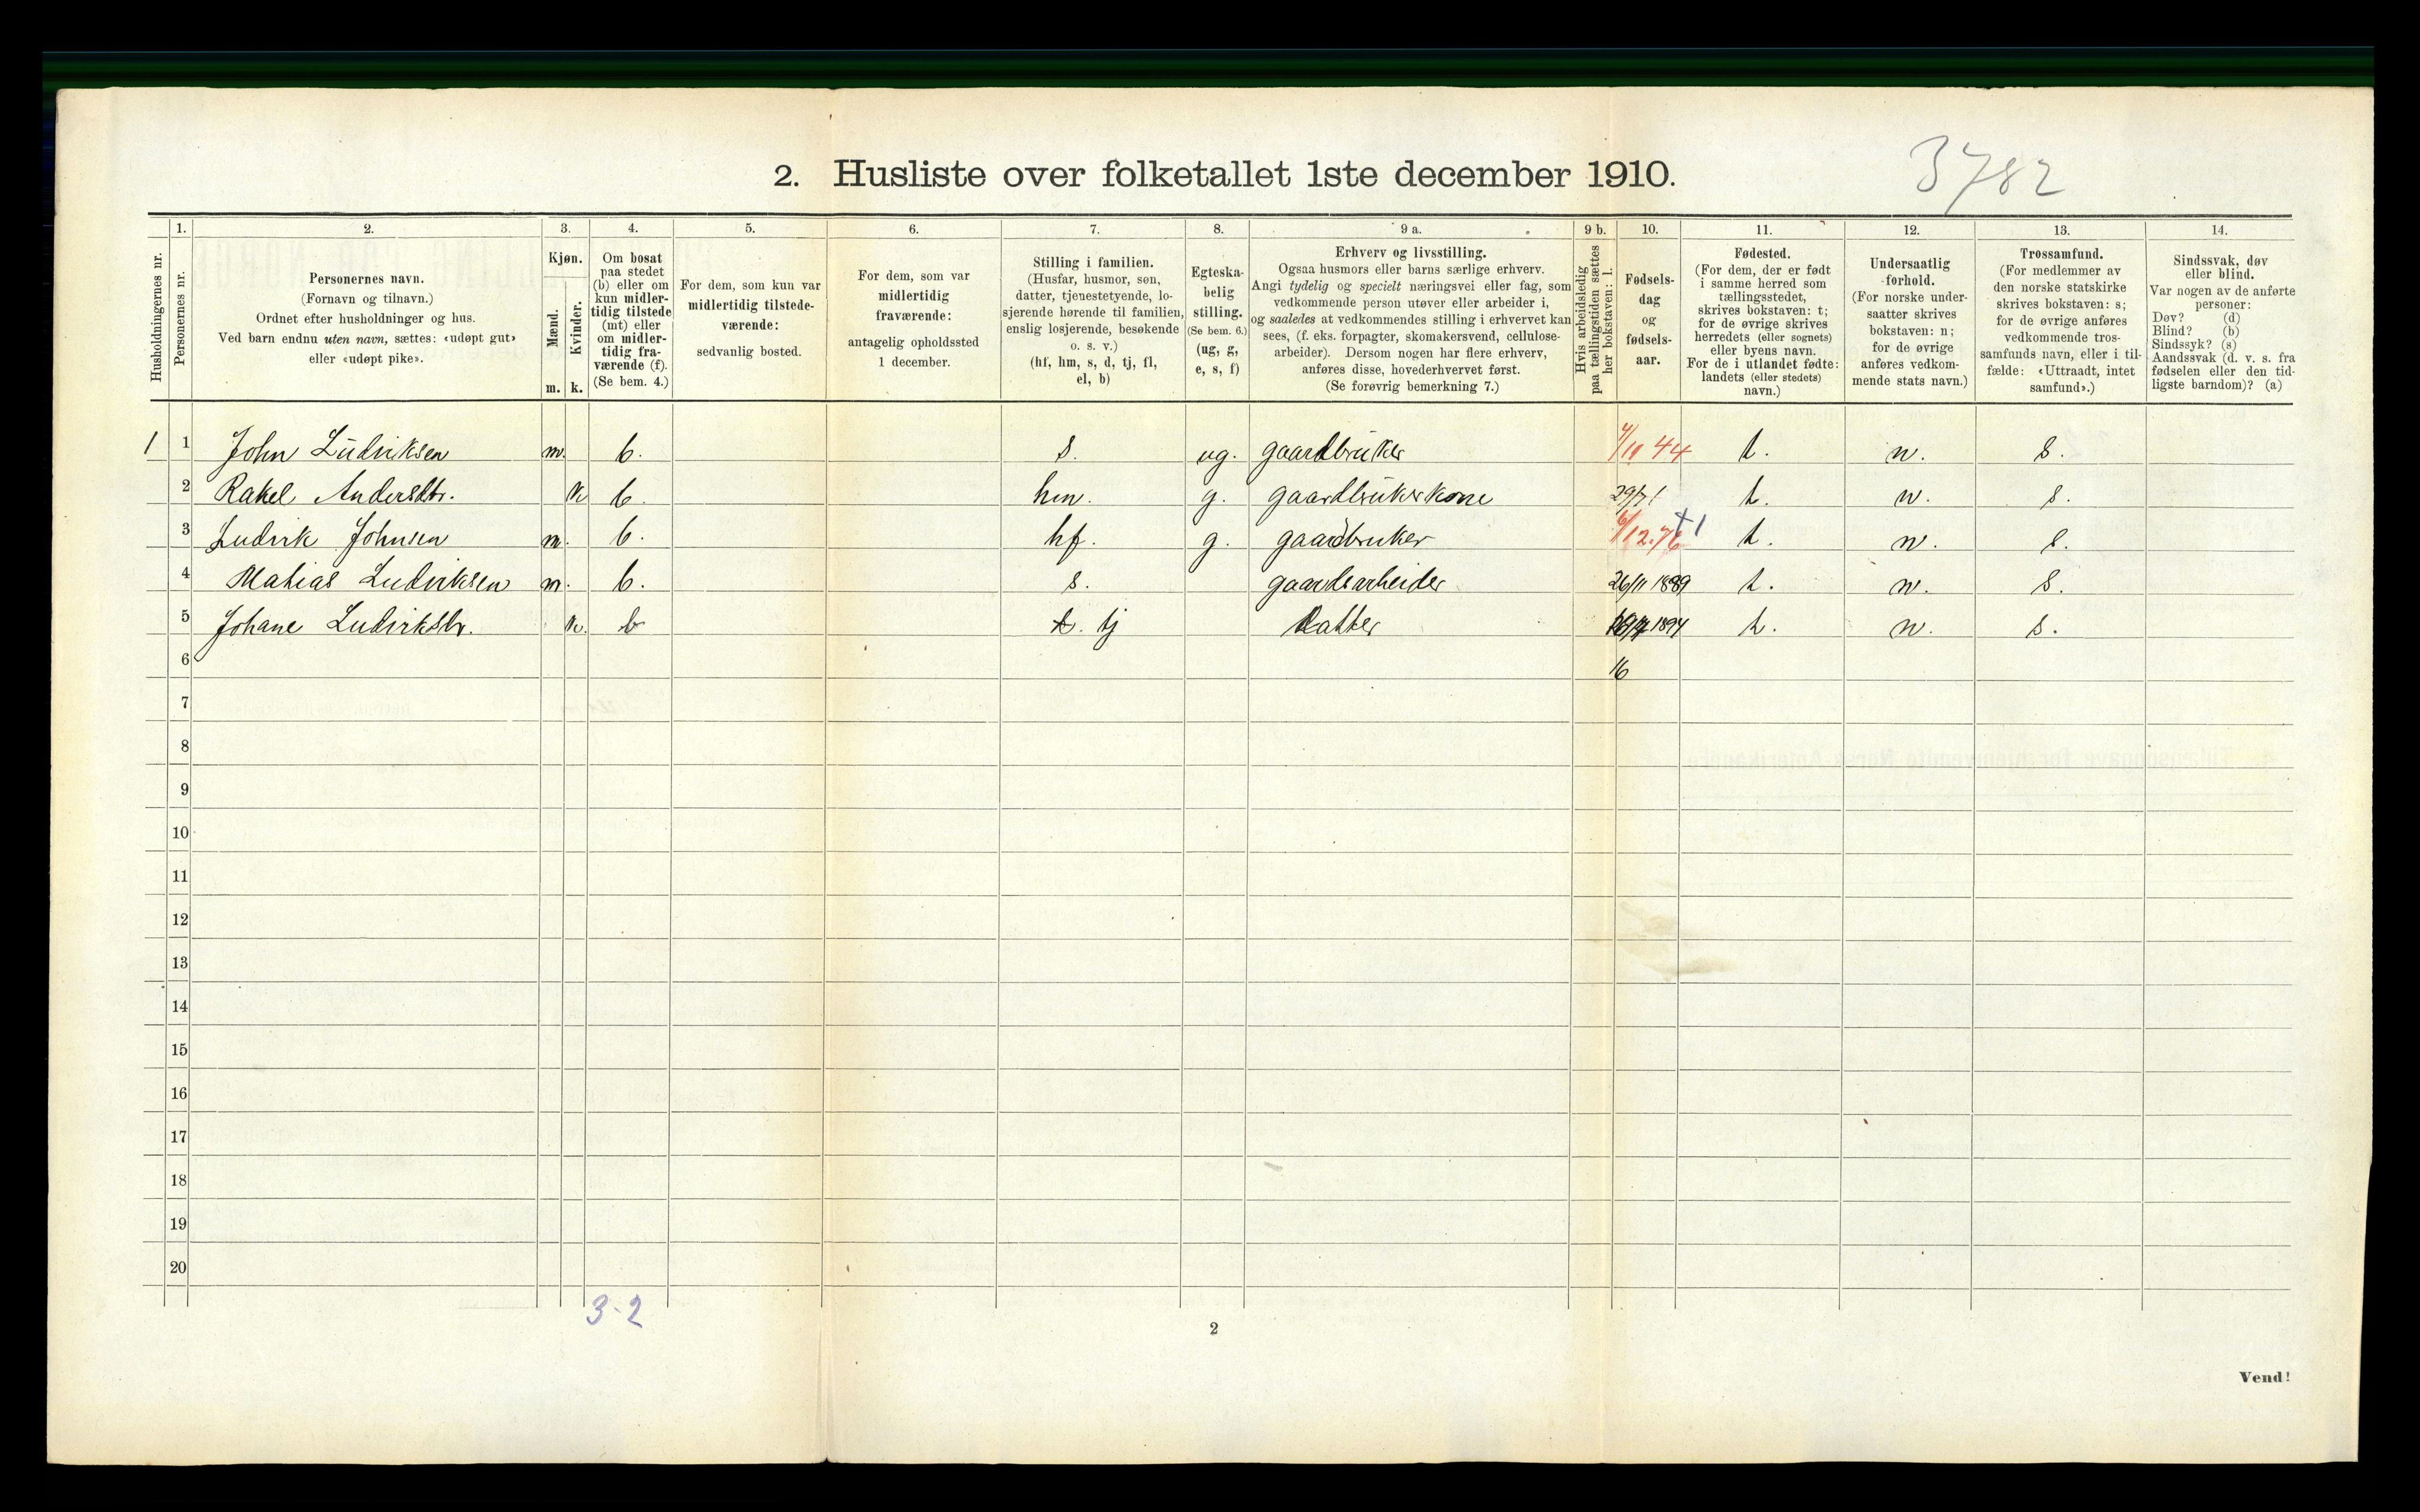 3782
2. Husliste over folketallet 1ste december 1910.
1. 2. 3. 4. 5. 6. 7. 8. 9 a. 9 b. 10. 11. 12. 13. 14.
Husholdningernes nr.
Personernes nr.
Personernes navn.
(Fornavn og tilnavn.)
Ordnet efter husholdninger og hus.
Ved barn endnu uten navn, sættes: «udøpt gut»
eller «udøpt pike».
Kjøn.
Mænd.
Kvinder.
m. k.
Om bosat
paa stedet
(b) eller om
kun midler-
tidig tilstede
(mt) eller
om midler-
tidig fra-
værende (f).
(Se bem. 4.)
For dem, som kun var
midlertidig tilstede-
værende:
sedvanlig bosted.
For dem, som var
midlertidig
fraværende:
antagelig opholdssted
1 december.
Stilling i familien.
(Husfar, husmor, søn,
datter, tjenestetyende, lo-
sjerende hørende til familien,
enslig losjerende, besøkende
o. s. v.)
(hf, hm, s, d, tj, fl,
el, b)
Egteska-
belig
stilling.
(Se bem. 6.)
(ug, g,
e, s, f)
Erhverv og livsstilling.
Ogsaa husmors eller barns særlige erhverv.
Angi tydelig og specielt næringsvei eller fag, som
vedkommende person utøver eller arbeider i,
og saaledes at vedkommendes stilling i erhvervet kan
sees, (f. eks. forpagter, skomakersvend, cellulose-
arbeider). Dersom nogen har flere erhverv,
anføres disse, hovederhvervet først.
(Se forøvrig bemerkning 7.)
Hvis arbeidsledig
paa tællingstiden sættes
her bokstaven: l.
Fødsels-
dag
og
fødsels-
aar.
Fødested.
(For dem, der er født
i samme herred som
tællingsstedet,
skrives bokstaven: t;
for de øvrige skrives
herredets (eller sognets)
eller byens navn.
For de i utlandet fødte:
landets (eller stedets)
navn.)
Undersaatlig
forhold.
(For norske under-
saatter skrives
bokstaven: n;
for de øvrige
anføres vedkom-
mende stats navn.)
Trossamfund.
(For medlemmer av
den norske statskirke
skrives bokstaven: s;
for de øvrige anføres
vedkommende tros-
samfunds navn, eller i til-
fælde: «Uttraadt, intet
samfund».)
Sindssvak, døv
eller blind.
Var nogen av de anførte
personer:
Døv? (d)
Blind? (b)
Sindssyk? (s)
Aandssvak (d. v. s. fra
fødselen eller den tid-
ligste barndom)? (a)
1 1 John Ludviksen m. b. s. ug. gaardbruker 44 t. n. s.
2 Rakel Andersdtr. k b. hm. g. gaardbrukerkone t. n. s.
3 Ludvik Johnsen m. b. hf. g. gaardbruker t. n. s.
4 Mahias Ludviksen m. b. s. gaardsarbeider 26/11 1889 t. n. s.
5 Johane Ludviksdr. k. b tj Datter 1894 t. n. s.
6 16
7
8
9
10
11
12
13
14
15
16
17
18
19
20
3-2
2
Vend!